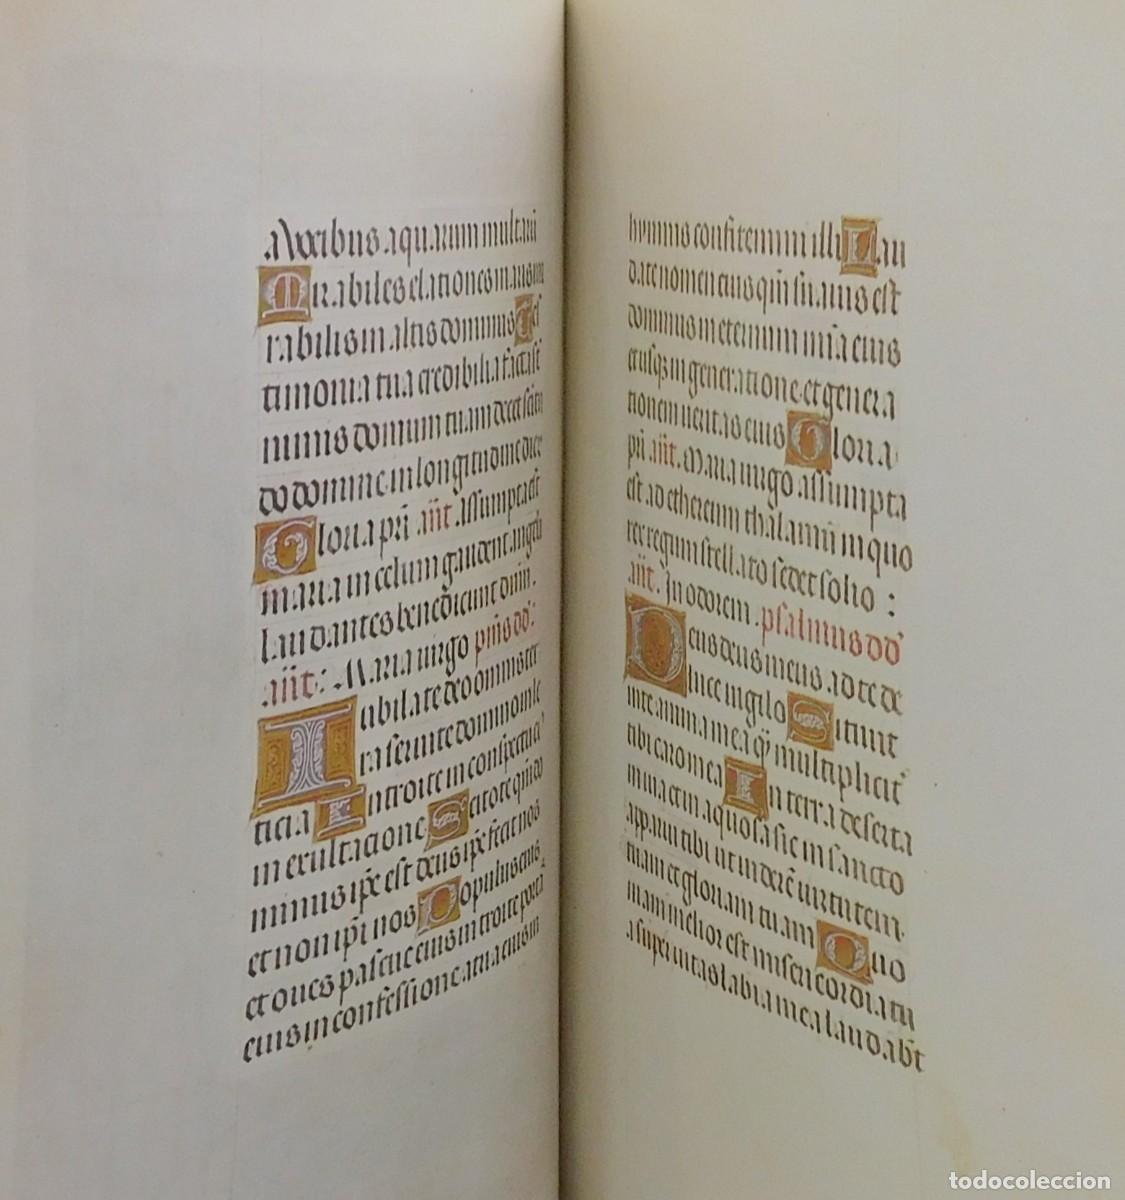 A vocibus aquarum multarū
Mirabiles elationes maris mi
rabilis in altis dominus Tes
timonia tua credibilia facta sūt
nimis domum tuam decet scītu
do domine in longitudine dier
Gloria pr̄i añt. assumpta est
maria in celum gaudent angeli
laudantes benedicunt dn̄m.
añt: Maria uirgo ps̄mus dd̄
Iubilate deo omnis ter
ra seruite domino in le
ticia Introite in conspectu ei
in exultatione Scitote qm̄ do
minus ip̄e est deus ip̄e fecit nos
et non ip̄i nos Populus eius
et oues pascue eius introite porta
eius in confessione atria eius in
hymnis confitemini illi Lau
date nomen eius qm̄ suauis est
dominus in eternum mīa eius
et usq̄ in generatione et genera
tionem ueritas eius Gloria
pr̄i añt. Maria uirgo assumpta
est ad ethereum thalamū in quo
rex regum stellato sedet solio :
añt. In odorem. psalmus dd̄
Deus deus meus ad te de
luce uigilo Sitiuit
in te anima mea q̄ multiplicit̄
tibi caro mea In terra deserta
inuia et in aquosa sic in sancto
apparui tibi ut uiderē uirtutem
tuam et gloriam tuam Quo
niam melior est misericordia tu
a super uitas labia mea laudabt̄
todocoleccion